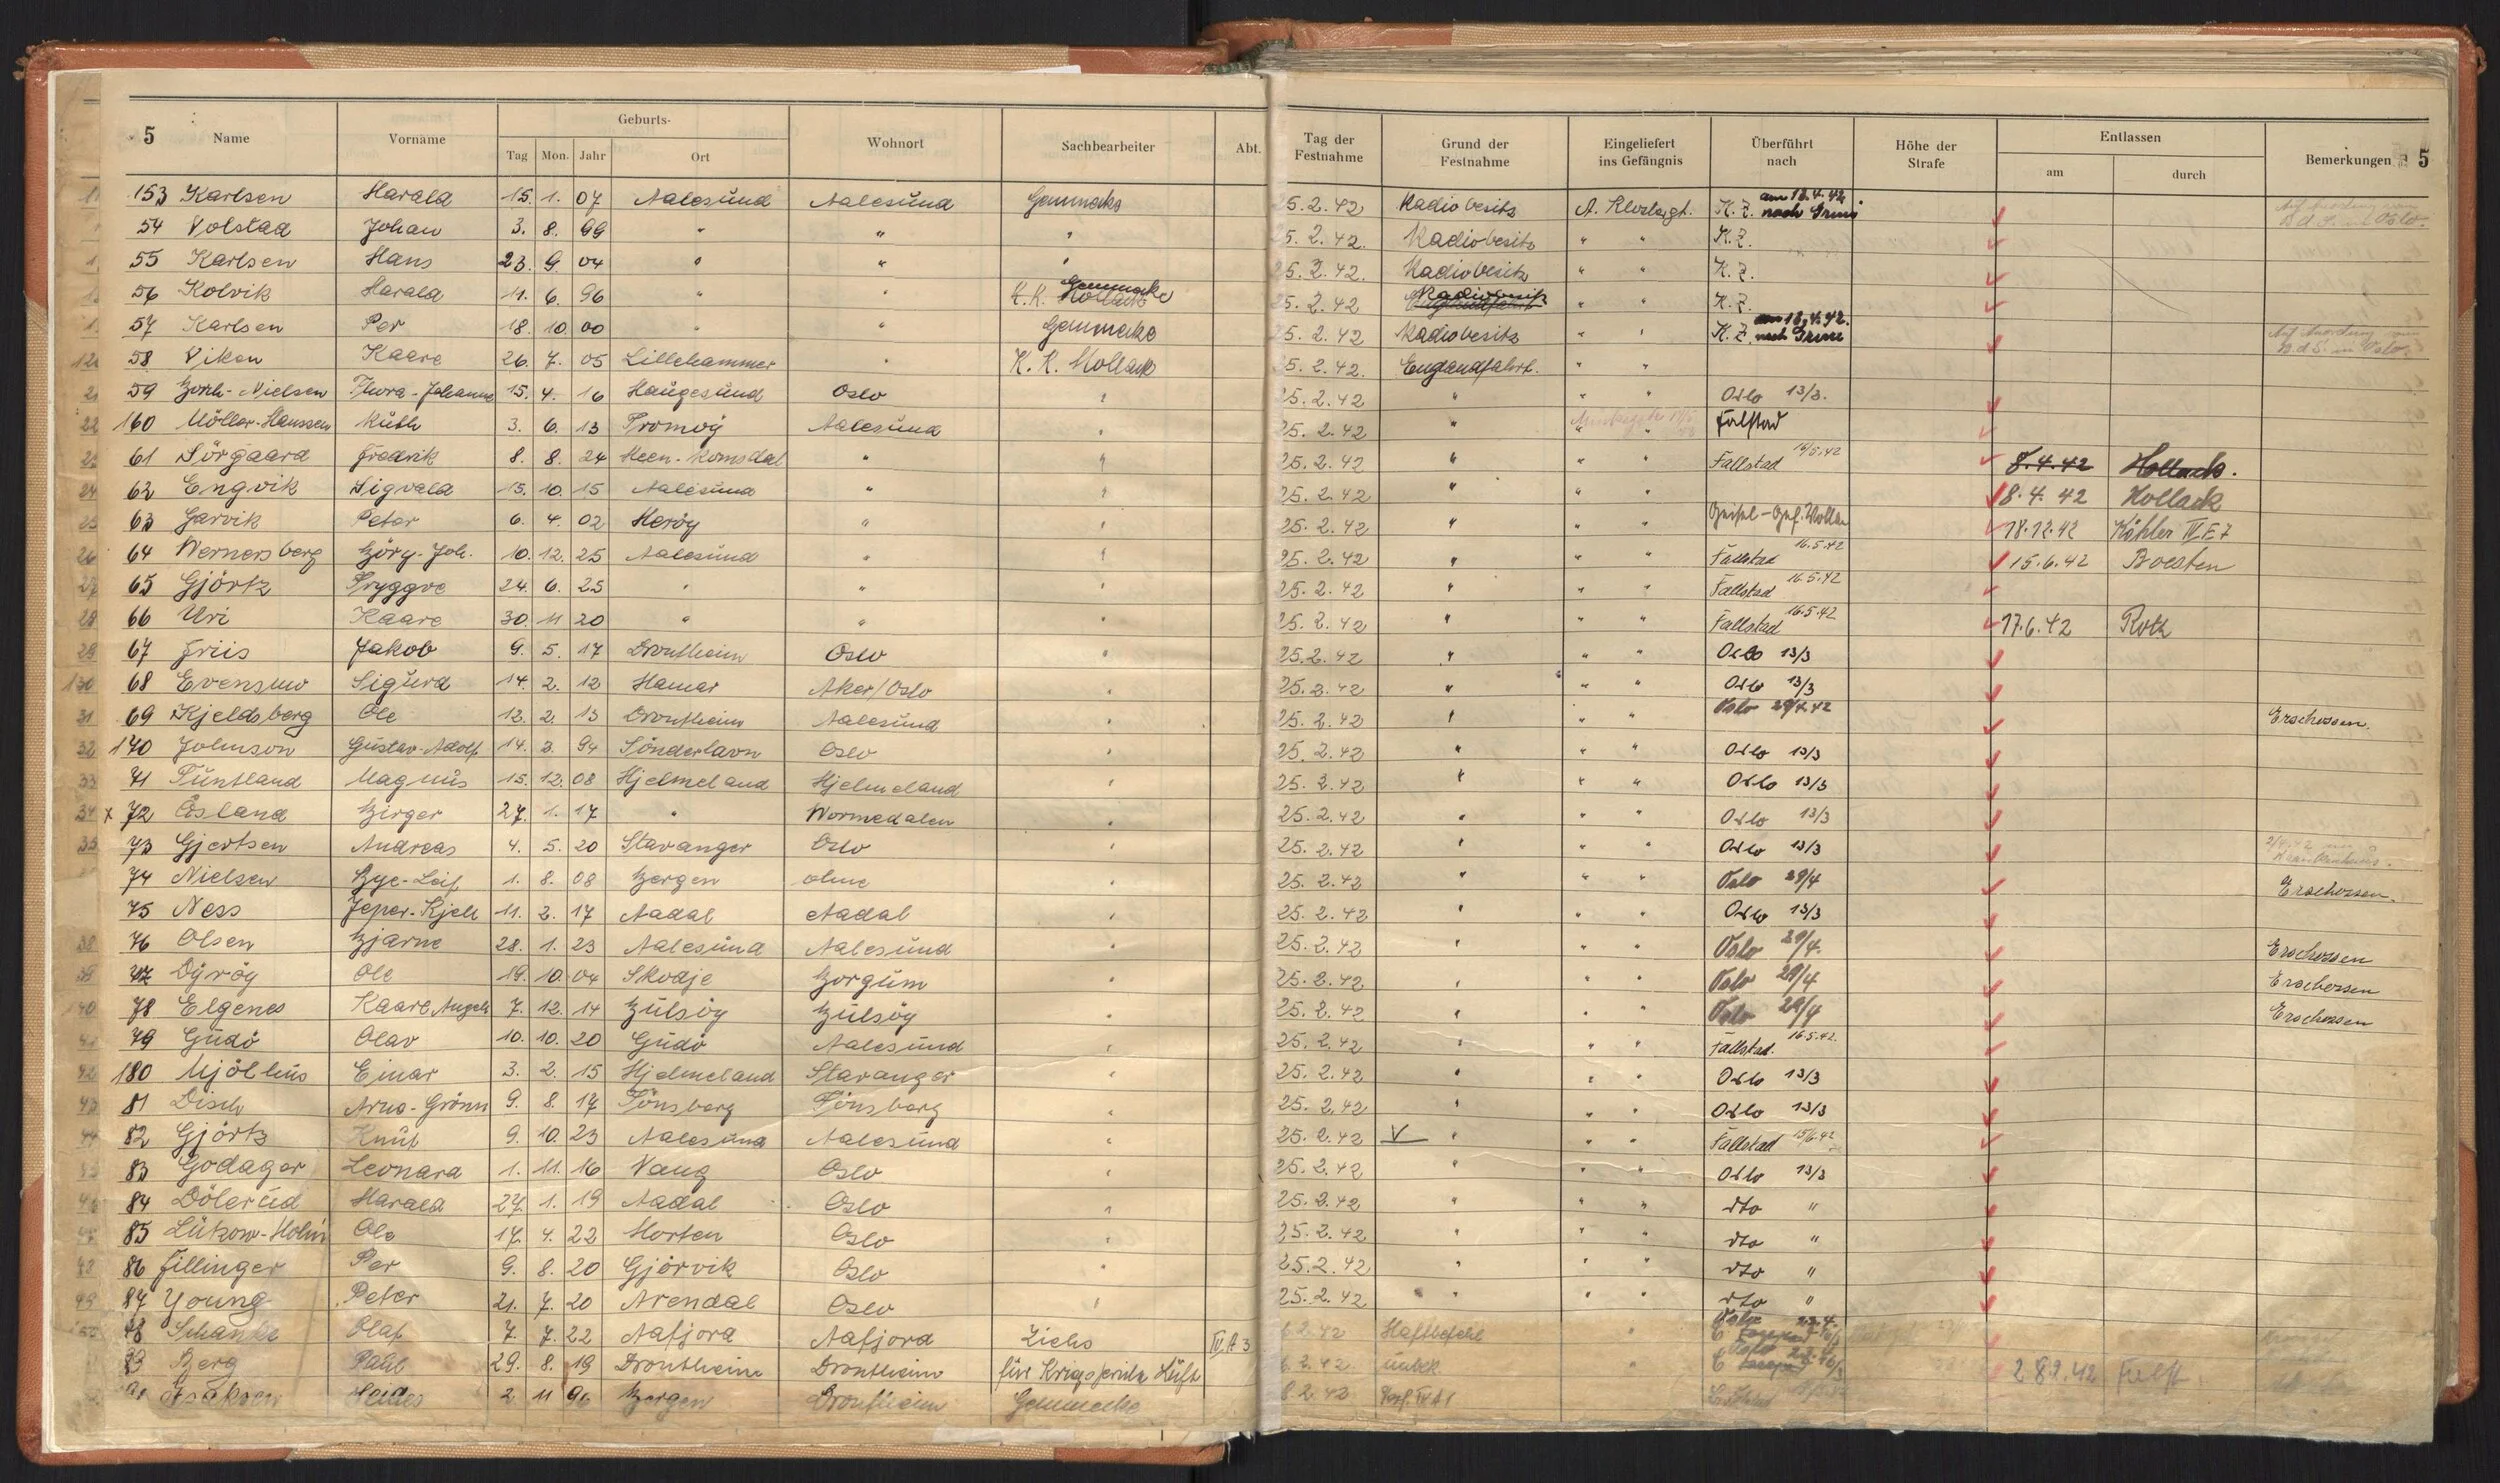 5 Name Vorname Geburts- Wohnort Sachbearbeiter Abt. Tag der Festnahme Grund der Festnahme Eingeliefert ins Gefängnis Überführt nach Höhe der Strafe Entlassen Bemerkungen 5
Tag Mon. Jahr Ort am durch
153 Karlsen Harald 15. 1. 07 Aalesund Aalesund Gemmecke 25.2.42 Radiobesitz A. Klostergt. K.Z. am 18.4.42 nach Grini B.d.S. in Oslo.
54 Volstad Johan 3. 8. 99 " " " 25.2.42. Radiobesitz " " K.Z.
55 Karlsen Hans 23. 9. 04 " " " 25.2.42. Radiobesitz " " K.Z.
56 Kolvik Harald 11. 6. 96 " " K.K. Hollack Gemmecke 25.2.42 Englandfahrt Radiobesitz " " K.Z.
57 Karlsen Per 18. 10. 00 " " Gemmecke 25.2.42 Radiobesitz " " K.Z. am 18.4.42. nach Grini Auf Anordnung vom B.d.S. in Oslo.
120 58 Viken Kaare 26. 7. 05 Lillehammer " K.K. Hollack 25.2.42. Englandfahrt. " "
21 59 Bonh-Nielsen Thora-Johanne 15. 4. 16 Haugesund Oslo " 25.2.42 " " " Oslo 13/3.
22 160 Möller-Hanssen Ruth 3. 6. 13 Tromöy Aalesund " 25.2.42 " " " Falstad
61 Sörgaard Fredrik 8. 8. 24 Veen-Romsdal " " 25.2.42 " " " Fallstad 16/5.42 8.4.42 Hollack.
24 62 Engvik Sigvald 15. 10. 15 Aalesund " " 25.2.42 " " " 8.4.42 Hollack
63 Garvik Peter 6. 4. 02 Heröy " " 25.2.42 " " " 18.12.42 Köhler IV E 7
26 64 Wernersberg Björg-Joh. 10. 12. 25 Aalesund " " 25.2.42 " " " Fallstad 16.5.42 15.6.42 Boesten
27 65 Gjörtz Tryggve 24. 6. 25 " " " 25.2.42 " " " Fallstad 16.5.42
28 66 Uri Kaare 30. 11 20 " " " 25.2.42 " " " Fallstad 16.5.42 17.6.42 Roth
29 67 Friis Jakob 9. 5. 17 Drontheim Oslo " 25.2.42 " " " Oslo 13/3
130 68 Evensmo Sigurd 14. 2. 12 Hamar Aker/Oslo " 25.2.42 " " " Oslo 13/3
31 69 Kjeldsberg Ole 12. 2. 13 Drontheim Aalesund " 25.2.42 " " " Oslo 29/4.42 Erschossen.
32 170 Johnson Gustav-Adolf 14. 3. 94 Sönderlavn Oslo " 25.2.42 " " " Oslo 13/3
33 71 Tuntland Magnus 15. 12. 08 Hjelmeland Hjelmeland " 25.2.42 " " " Oslo 13/3
34 x 72 Ösland Birger 27. 1. 17 " Wormedalen " 25.2.42 " " " Oslo 13/3
35 73 Gjertsen Andreas 4. 5. 20 Stavanger Oslo " 25.2.42 " " " Oslo 13/3
74 Nielsen Bye-Leif 1. 8. 08 Bergen ohne " 25.2.42 " " " Oslo 29/4 Erschossen.
75 Ness Jeper-Kjell 11. 2. 17 Aadal Aadal " 25.2.42 " " " Oslo 13/3
38 76 Olsen Bjarne 28. 1. 23 Aalesund Aalesund " 25.2.42 " " " Oslo 29/4. Erschossen
77 Dyröy Ole 19. 10. 04 Skodje Borgum " 25.2.42 " " " Oslo 29/4 Erschossen
40 78 Elgenes Kaare Angell 7. 12. 14 Bulsöy Bulsöy " 25.2.42 " " " Oslo 29/4 Erschossen
79 Gudö Olav 10. 10. 20 Gudö Aalesund " 25.2.42 " " " Fallstad. 16.5.42.
42 180 Mjölhus Einar 3. 2. 15 Hjelmeland Stavanger " 25.2.42 " " " Oslo 13/3
43 81 Disch Arne-Grönn 9. 8. 17 Tönsberg Tönsberg " 25.2.42 " " " Oslo 13/3
44 82 Gjörtz Knut 9. 10. 23 Aalesund Aalesund " 25.2.42 V " " " Fallstad 15/6.42
83 Godager Leonard 1. 11. 16 Vang Oslo " 25.2.42 " " " Oslo 13/3
46 84 Dölerud Harald 27. 1. 19 Aadal Oslo " 25.2.42 " " " dto "
85 Lützow-Holm Ole 17. 4. 22 Horten Oslo " 25.2.42 " " " dto "
48 86 Fillinger Per 9. 8. 20 Gjörvik Oslo " 25.2.42 " " " dto "
49 87 Young Peter 21. 7. 20 Arendal Oslo " 25.2.42 " " " dto "
88 Schanke Olaf 7. 7. 22 Aafjord Aafjord Zichs IV A 3 6.2.42 Haftbefehl " Oslo 22.4.
89 Berg Paul 29. 8. 19 Drontheim Drontheim 6.2.42. unbek. " Oslo 28.9.42
Isaksen 2 11 96 Bergen Drontheim Gemmecke 8.2.42